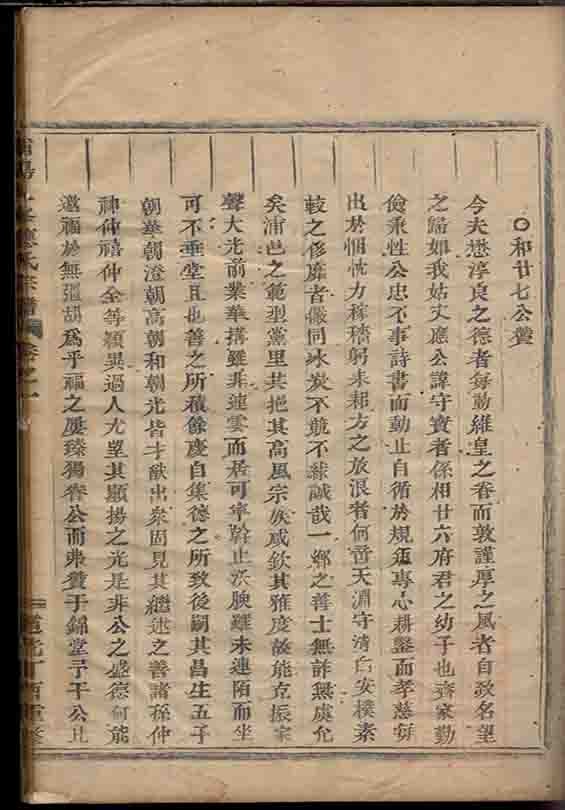 ○和廿七公贊
今夫懋淳良之德者每動維皇之眷而敦謹厚之風者自致名望
之歸如我姑丈應公諱守寶者係相廿六府君之幼子也齊家勤
儉秉性公忠不事詩書而動止自循於規矩專心耕鑿而孝慈每
出於悃忱力稼穡躬耒耜方之放浪者何啻天淵守清白安樸素
較之修靡者儼同冰炭不競不絿誠哉一鄉之善士無詐無虞允
矣浦邑之範型黨里共挹其高風宗族咸欽其雅度故能克振家
聲大光前業華搆雖非連雲而居可寧榦止沃腴雖未連陌而坐
可不垂堂且也善之所積餘慶自集德之所致後嗣其昌生五子
朝華朝澄朝高朝和朝光皆才猷出衆固見其繼述之善諸孫仲
神仲禧仲全等穎異過人尤望其顯揚之光是非公之盛德何能
邀福於無疆胡爲乎福之屢臻獨眷公而弗贊于錦堂予于公且
應氏宗譜 卷之一
道光丁酉重修